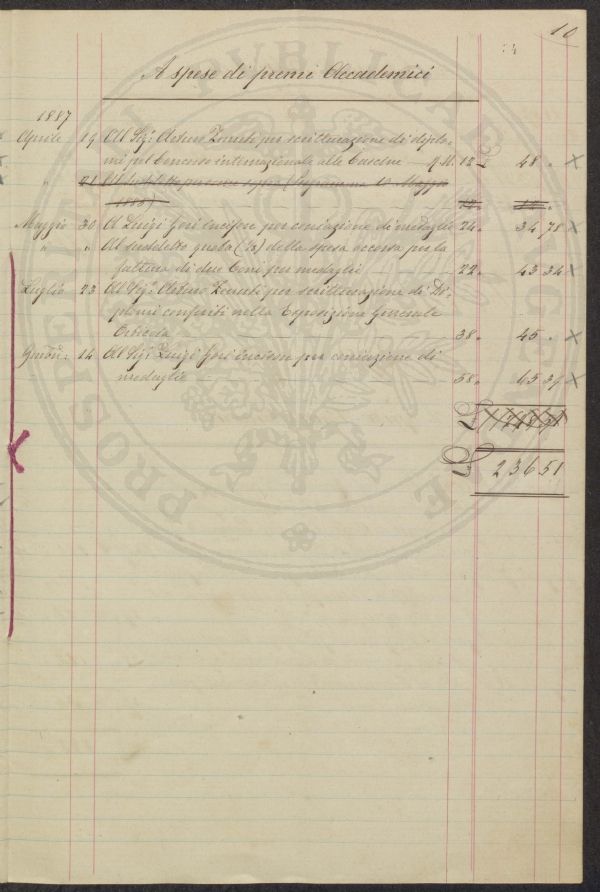 10
24
A spese di premi Accademici
1887
Aprile 19 Al Sig: Arturo per scritturazione di diplo-
mi pel Concorso internazionale alle Cascine — G.M. 12 £ 48 „ ×
„ 21
Maggio 30 A Luigi Gori incisore per coniazione di medaglie 24 „ 34 78 ×
„ „ Al suddetto quota (½) della spesa occorsa per la
fattura di due Coni per medaglie 22 „ 43 34 ×
Luglio 23 Al Sig: Arturo per scritturazione di Di-
plomi conferiti nella Esposizione Generale
38 „ 45 „ ×
14 Al Sig: Luigi Gori incisore per coniazione di
medaglie 58 „ 45 39 ×
£
£ 236 51
PUBLICAE
PROSPERITATI